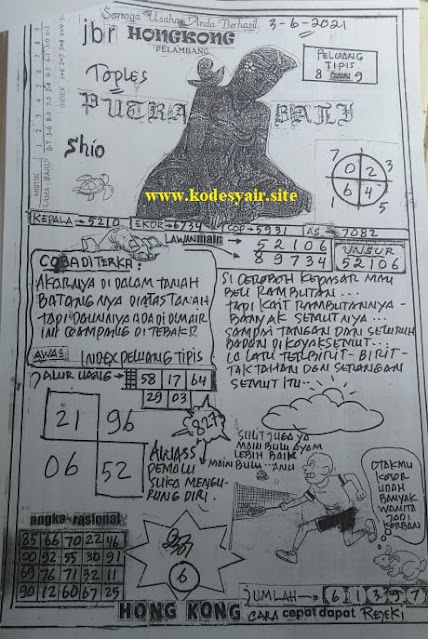 Semoga Usaha Anda Berhasil
3-6-2021
jbr HONGKONG
PELAMBANG
PELUANG
TIPIS
8 9
TOPLES
PUTRA BALI
Shio
7 3
0 2
6 4
1 5
www.kodesyair.site
KEPALA→5210 EKOR→6734 COP→5931 AS→7082
LAWAN MAIN
5 2 1 0 6
8 9 7 3 4
UNSUR
52106
COBA DITERKA:
AKARNYA DI DALAM TANAH
BATANGNYA DIATAS TANAH
TAPI DAUNNYA ADA DI
INI GAMPANG DI TEBAK
AWAS INDEX PELUANG TIPIS
SI CEROBOH KEPASAR MAU
BELI RAMBUTAN...
TAPI KAIT RAMBUTANNYA-
BANYAK SEMUTNYA...
SAMPAI TANGAN DAN SELURUH
BADAN DI KOYAK SEMUT...
LA LARI TERBIRIT-BIRIT-
TAK TAHAN DGN SERANGAN
SEMUT ITU..
JALUR UANG→ 58 17 64
29 03
21 96
06 52
827
ALIASS
PEMALU
SUKA MENGU-
RUNG DIRI.
SULIT JUGA YA
MAIN BULU AYAM
LEBIH BAIK
MAIN BULU... ANU
OTAKMU
KOTOR
UDAH
BANYAK
WANITA
JADI
KORBAN
angka rasional
85 86 70 22 46
00 92 55 30 91
69 76 71 32 11
90 12 60 67 25
6
JUMLAH→ 6 1 3 9 7
HONG KONG CARA cepat dapat REJEKI